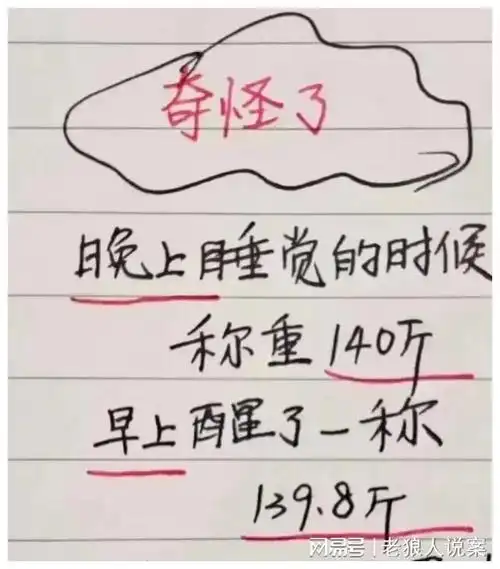 奇怪了
晚上睡觉的时候
称重140斤
早上醒了一称
139.8斤
网易号 | 老狼人说案